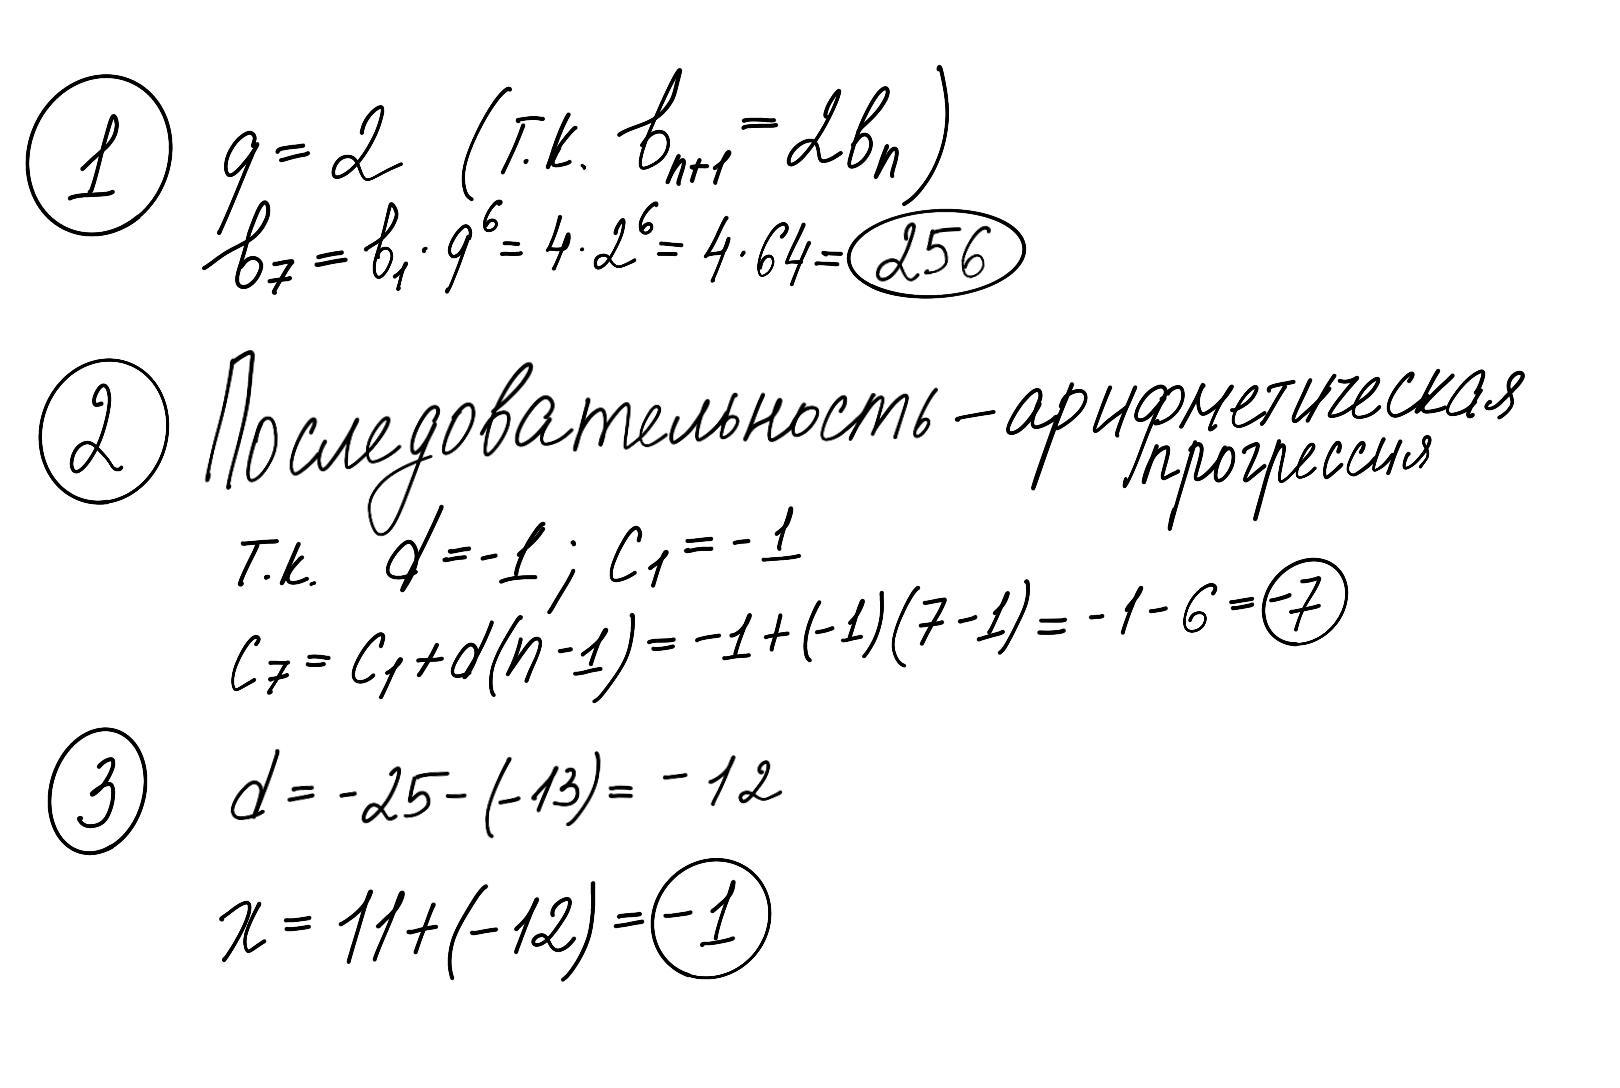 1 q = 2 (т.к. bₙ₊₁ = 2bₙ)
b₇ = b₁ · q⁶ = 4 · 2⁶ = 4 · 64 = 256
2 Последовательность – арифметическая
прогрессия
т.к. d = -1 ; c₁ = -1
c₇ = c₁ + d(n - 1) = -1 + (-1)(7 - 1) = -1 - 6 = -7
3 d = -25 - (-13) = -12
x = 11 + (-12) = -1